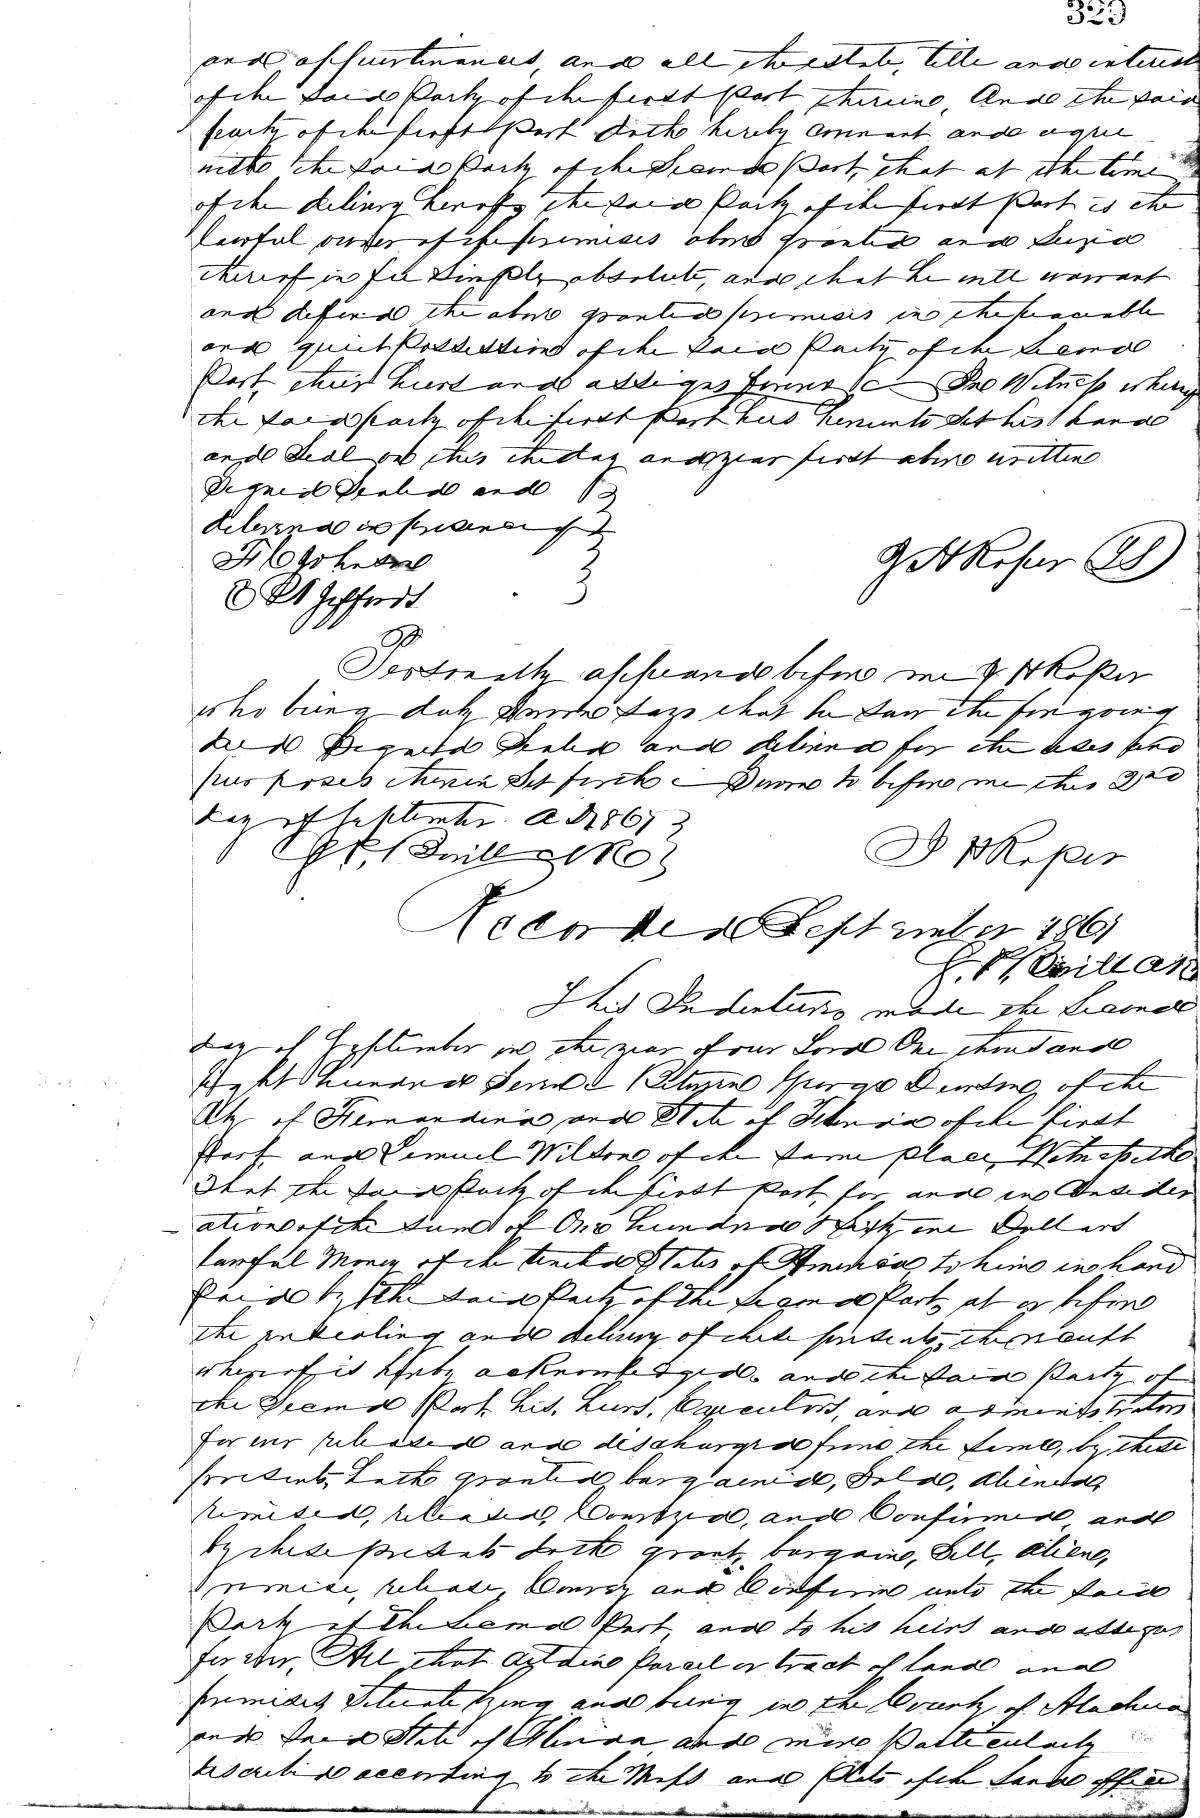 329
and appurtinances, and all the estate, title and interest
of the Said Party of the first Part therein, And the said
party of the first Part doth hereby covenant and agree
with the Said Party of the Second Part, that at the time
of the delivery hereof, the said Party of the first Part is the
lawful owner of the premises above granted and Seized
thereof in fee Simple absolute, and that he will warrant
and defend the above granted premises in the peaceable
and quiet Possession of the Said Party of the Second
Part, their heirs and assigns forever In Witness whereof
the said party of the first Part has hereunto Set his hand
and Seal on this the day and year first above written
Signed Sealed and
delivered in presence of
H C Johnson
Jeffords
J H Roper LS
Personally appeared before me J H Roper
who being duly Sworn Says that he Saw the foregoing
deed Signed Sealed and delivered for the uses and
purposes therein Set forth Sworn to before me this 2nd
day of September A D 1867
J H Roper
Recorded September 1867
This Indenture made the Second
day of September in the year of our Lord One thousand
Eight hundred Seven Between George Dewson, of the
City of Fernandina and State of Florida of the first
Part, and Lemuel Wilson of the Same place, Witnesseth
That the Said Party of the first Part, for and in Consider
ation of the Sum of One hundred & Sixty one Dollars
lawful Money of the United States of America, to him in hand
Paid by the Said Party of the Second Part, at or before
the ensealing and delivery of these presents, the receipt
whereof is hereby acknowledged. and the Said Party of
the Second Part, his, heirs, Executors, and administrators
forever released and discharged from the Same, by these
presents, hath granted, bargained, Sold, aliened,
remised, released, Conveyed, and Confirmed, and
by these presents doth grant, bargain, Sell, alien,
remise, release, Convey and Confirm unto the Said
Party of the Second Part, and to his heirs and assigns
forever, All that certain Parcel or tract of land and
premises, Situate lying and being in the County of Alachua
and Said State of Florida and more Particularly
described according to the Maps and Plats of the Land office